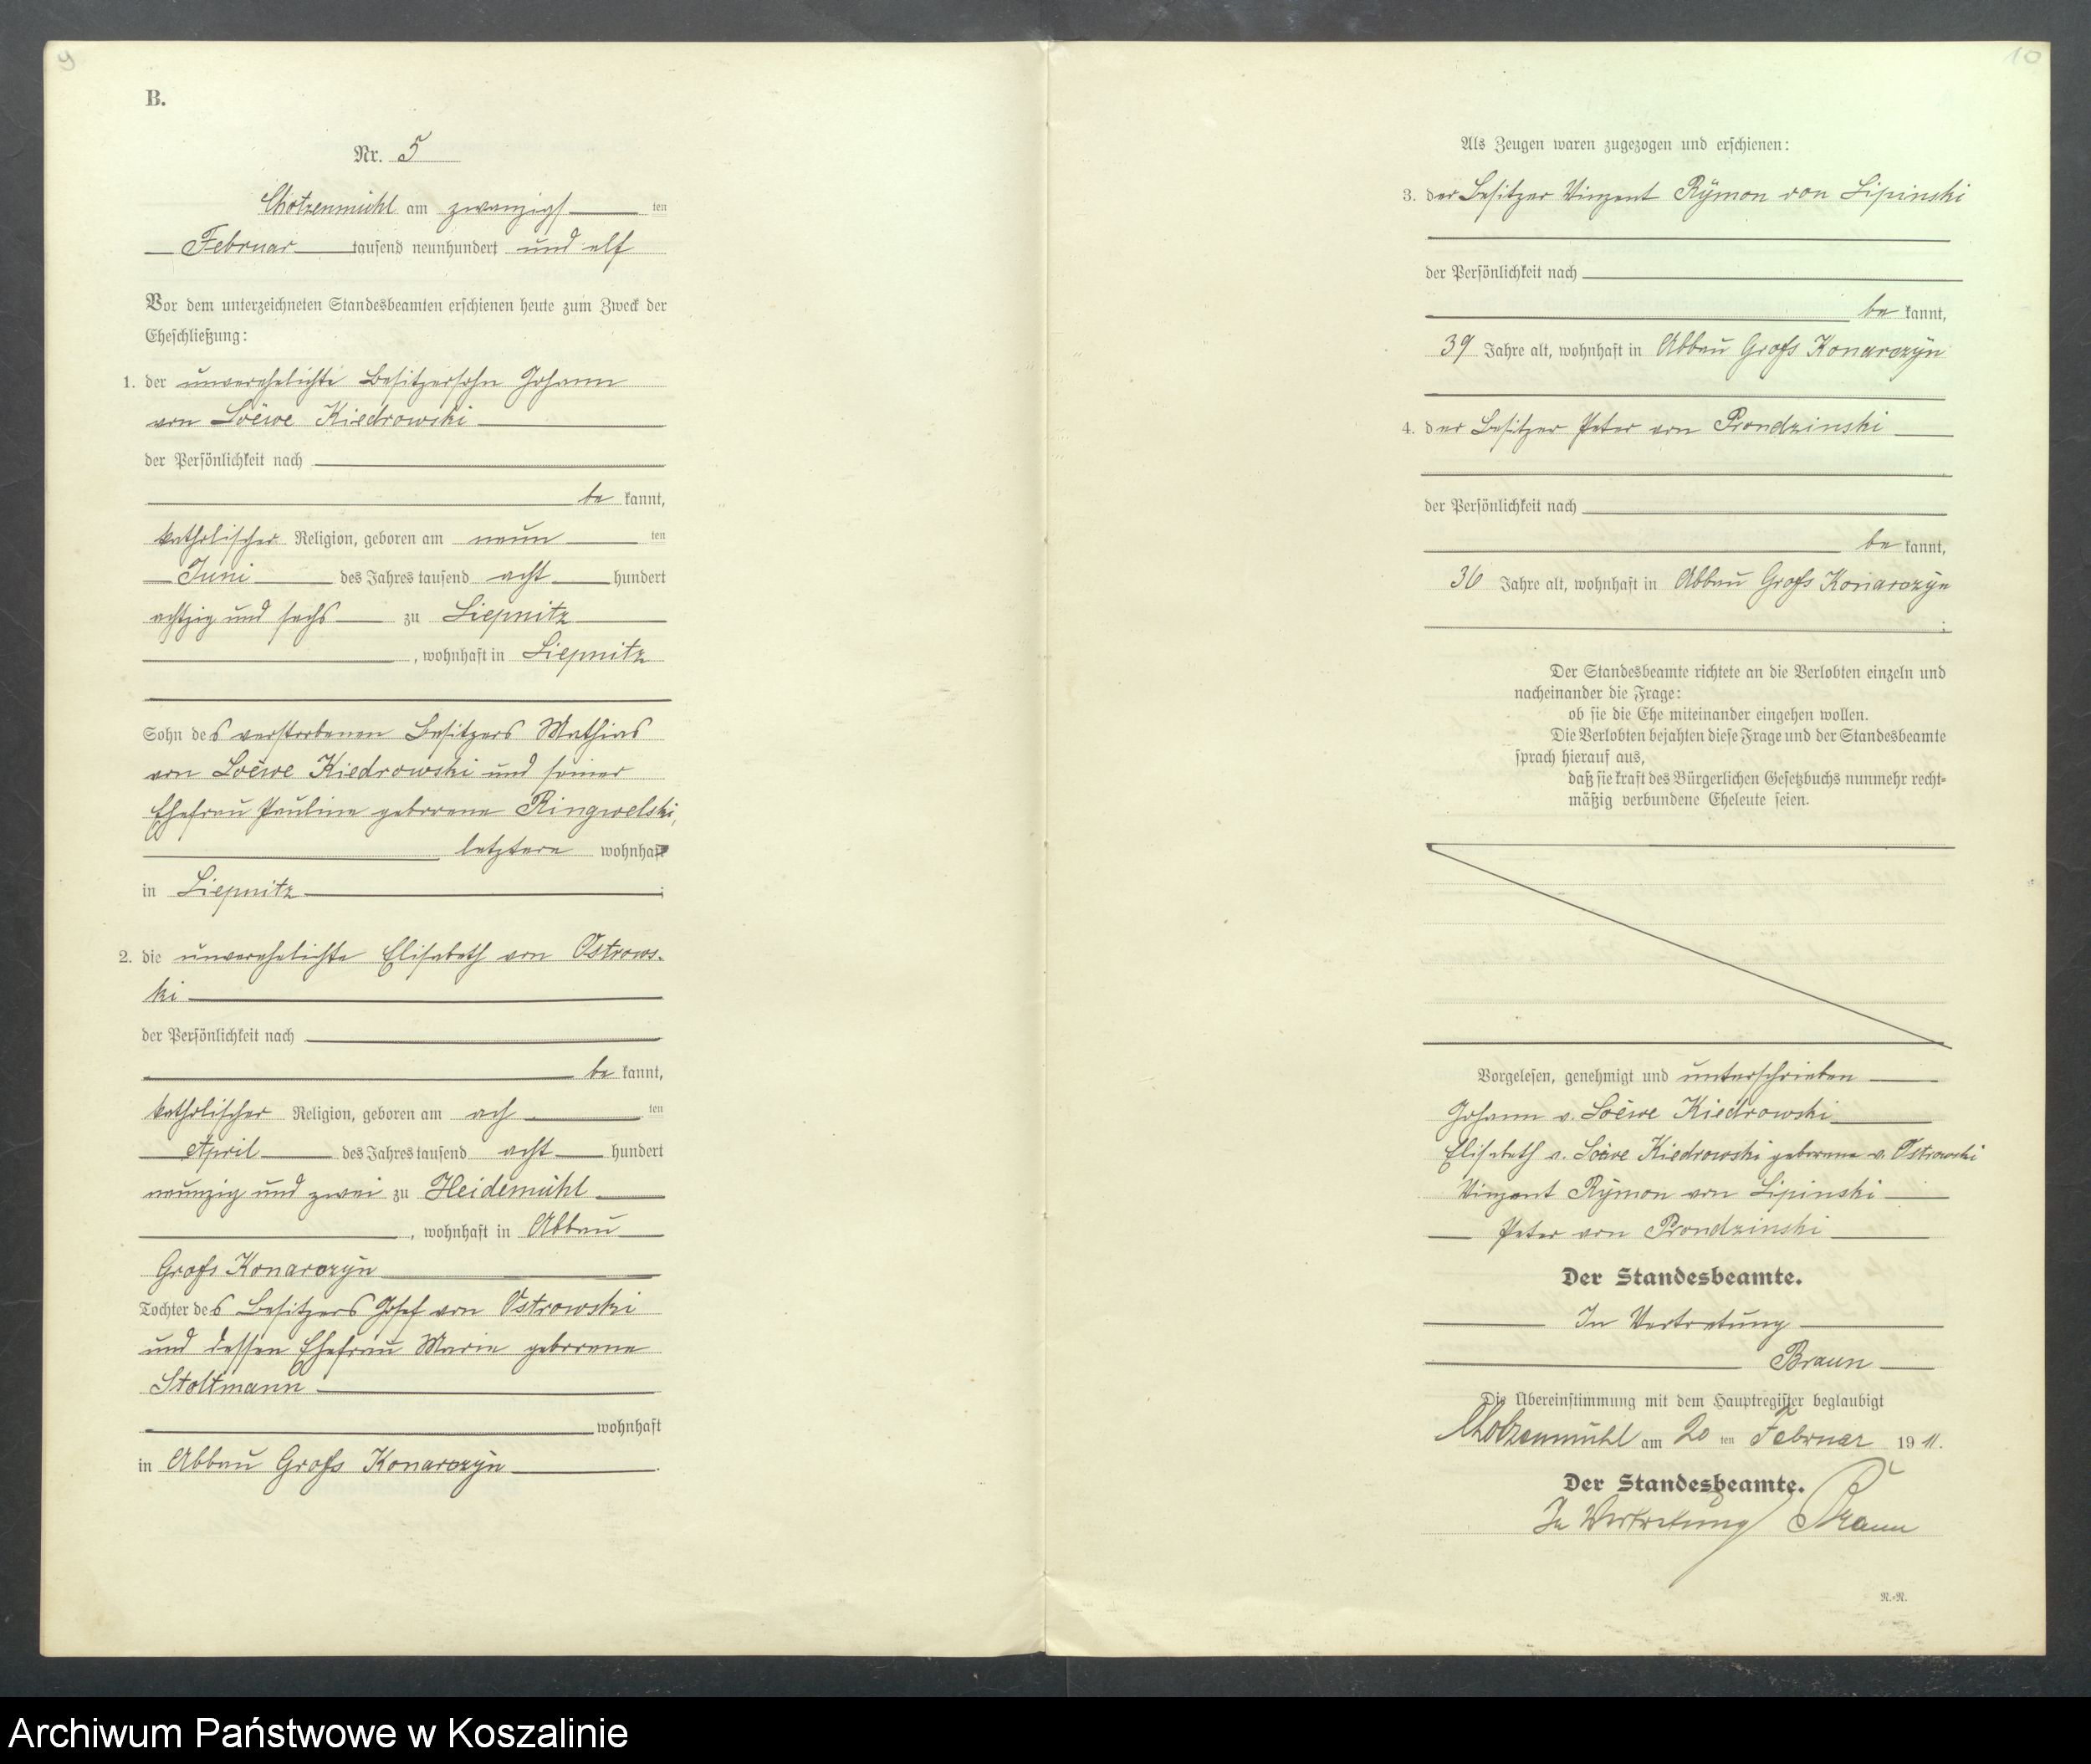 9
B.
Nr. 5
Chotzenmühl am zwanzigs ten
Februar tausend neunhundert und elf
Vor dem unterzeichneten Standesbeamten erschienen heute zum Zweck der
Eheschließung:
1. der unverehelichte Besitzersohn Johann
von Loëwe Kiedrowski
der Persönlichkeit nach
be kannt,
katholischer Religion, geboren am neun ten
Juni des Jahres tausend acht hundert
achtzig und sechs zu Liepnitz
, wohnhaft in Liepnitz
Sohn des verstorbenen Besitzers Mathias
von Loëwe Kiedrowski und seiner
Ehefrau Pauline geborene Ringwelski,
letztere wohnhaft
in Liepnitz ;
2. die unverehelichte Elisabeth von Ostrows-
ki
der Persönlichkeit nach
be kannt,
katholischer Religion, geboren am ach ten
April des Jahres tausend acht hundert
neunzig und zwei zu Heidemühl
, wohnhaft in Abbau
Groß Konarczyn
Tochter des Besitzers Josef von Ostrowski
und dessen Ehefrau Marie geborene
Stoltmann
wohnhaft
in Abbau Groß Konarczyn .
10
Als Zeugen waren zugezogen und erschienen:
3. der Besitzer Vinzent Rÿmon von Lipinski
der Persönlichkeit nach
be kannt,
39 Jahre alt, wohnhaft in Abbau Groß Konarczÿn
4. der Besitzer Peter von Prondzinski
der Persönlichkeit nach
be kannt,
36 Jahre alt, wohnhaft in Abbau Groß Konarczÿn
;
Der Standesbeamte richtete an die Verlobten einzeln und
nacheinander die Frage:
ob sie die Ehe miteinander eingehen wollen.
Die Verlobten bejahten diese Frage und der Standesbeamte
sprach hierauf aus,
daß sie kraft des Bürgerlichen Gesetzbuchs nunmehr recht-
mäßig verbundene Eheleute seien.
Vorgelesen, genehmigt und unterschrieben
Johann v. Loëwe Kiedrowski
Elisabeth v. Loëwe Kiedrowski geborene v. Ostrowski
Vinzent Rÿmon von Lipinski
Peter von Prondzinski
Der Standesbeamte.
In Vertretung
Braun
Die Übereinstimmung mit dem Hauptregister beglaubigt
Chotzenmühl am 20 ten Februar 19 11.
Der Standesbeamte.
In Vertretung Braun
N.-N.
Archiwum Państwowe w Koszalinie